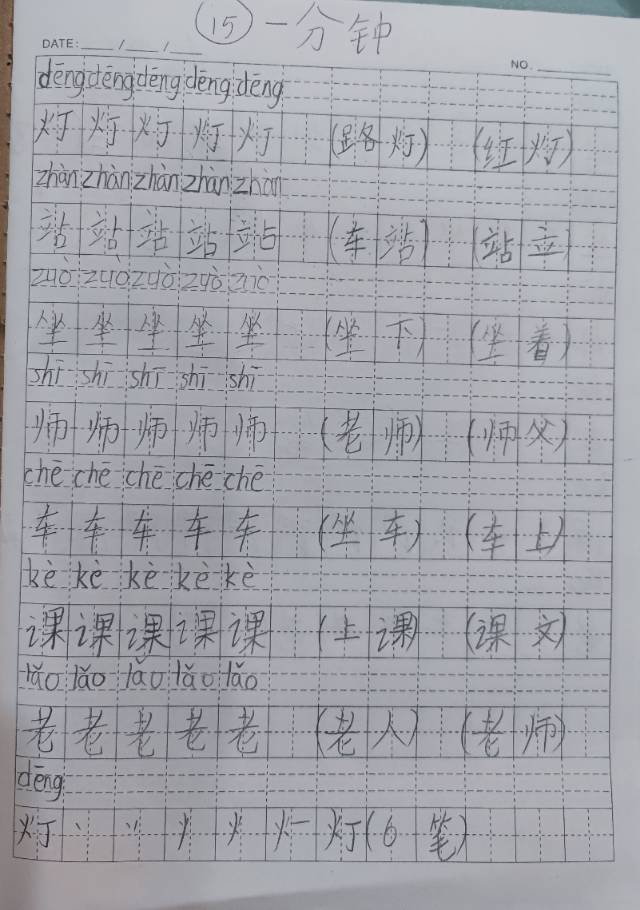 ⑮ 一分钟
DATE: / /
NO.
dēng dēng dēng dēng dēng
灯 灯 灯 灯 灯 (路灯) (红灯)
zhàn zhàn zhàn zhàn zhàn
站 站 站 站 站 (车站) (站立)
zuò zuò zuò zuò zuò
坐 坐 坐 坐 坐 (坐下) (坐着)
shī shī shī shī shī
师 师 师 师 师 (老师) (师父)
chē chē chē chē chē
车 车 车 车 车 (坐车) (车上)
kè kè kè kè kè
课 课 课 课 课 (上课) (课文)
lǎo lǎo lǎo lǎo lǎo
老 老 老 老 老 (老人) (老师)
dēng
灯 丶 丷 火 灯 (6笔)